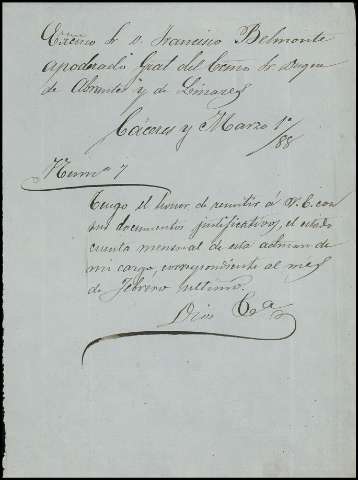 Excmo Sr D. Francisco Belmonte
apoderado Gral del Ecmo Sr Duque
de Abrantes y de Linares
Cáceres y Marzo 1º/88
Numº 7
Tengo el honor de remitir á V.E. con
sus documentos justificativos, el estado
cuenta mensual de esta admon de
mi cargo, correspondiente al mes
de Febrero ultimo.
Dios &ª